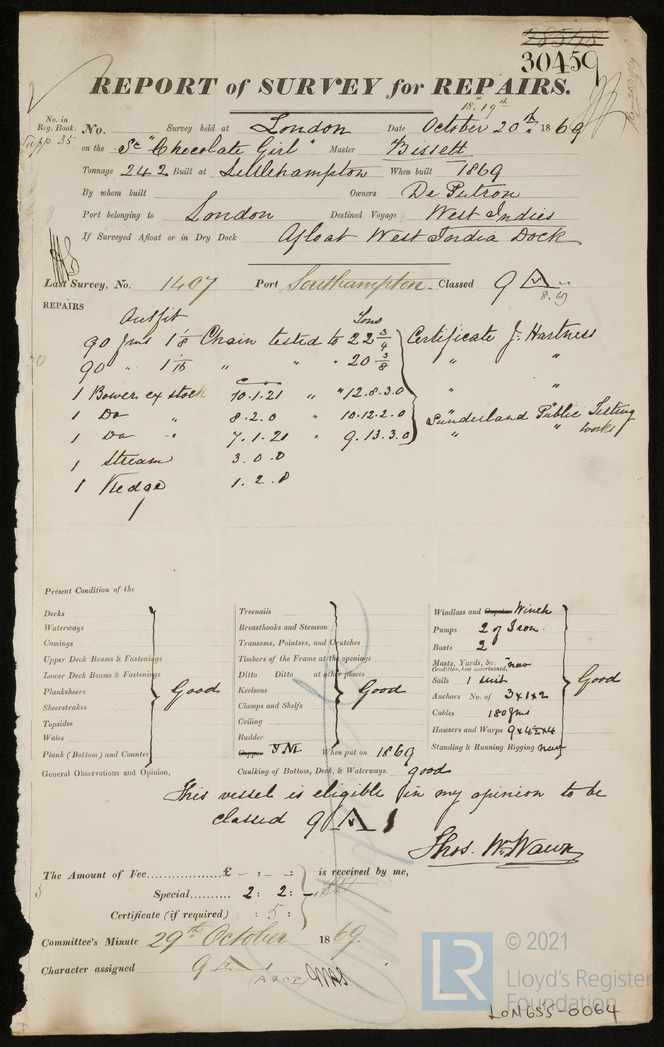 28548
30459
REPORT of SURVEY for REPAIRS.
18th 19th
No. in Reg. Book. No. Survey held at London Date October 20th 1869
Supp 35 on the Sc "Chocolate Girl" Master Bissett
Tonnage 242 Built at Littlehampton When built 1869
By whom built Owners De Putron
Port belonging to London Destined Voyage West Indies
If Surveyed Afloat or in Dry Dock Afloat West India Dock
Last Survey, No. 1407 Port Southampton Classed 9 A
8.69
REPAIRS
Outfit Tons
90 fms 1 1/8 Chain tested to 22 3/4 Certificate J. Hartness
90 " 1 1/16 " " " 20 3/8 " "
1 Bower ex stock 10.1.21 " "12.8.3.0 " "
1 Do " 8.2.0 " 10.12.2.0 Sunderland Public Testing
1 Do " 7.1.21 " 9.13.3.0 " " works
1 Stream 3.0.0
1 Kedge 1.2.0
Present Condition of the
Decks
Waterways
Comings
Upper Deck Beams & Fastenings
Lower Deck Beams & Fastenings
Planksheers Good
Sheerstrakes
Topsides
Wales
Plank (Bottom) and Counter
Treenails
Breasthooks and Stemson
Transoms, Pointers, and Crutches
Timbers of the Frame at the openings
Ditto Ditto at other places
Keelsons Good
Clamps and Shelfs
Ceiling
Rudder
Copper Y.M When put on 1869
Caulking of Bottom, Deck, & Waterways good
Windlass and Capstan Winch
Pumps 2 of Iron
Boats 2
Masts, Yards, &c. new
Condition, how ascertained,
Sails 1 suit Good
Anchors No. of 3x1x2
Cables 180 fms
Hawsers and Warps 9x4x4
Standing & Running Rigging new
General Observations and Opinion,
This vessel is eligible in my opinion to be
classed 9 A 1
Thos. Wm Wawn
The Amount of Fee £ - : - : - is received by me,
Special 2 : 2 : -
Certificate (if required) : 5 :
Committee's Minute 29th October 1869.
Character assigned 9 A 1
(A & CP)
LR © 2021
Lloyd's Register
Foundation
LON655-0064